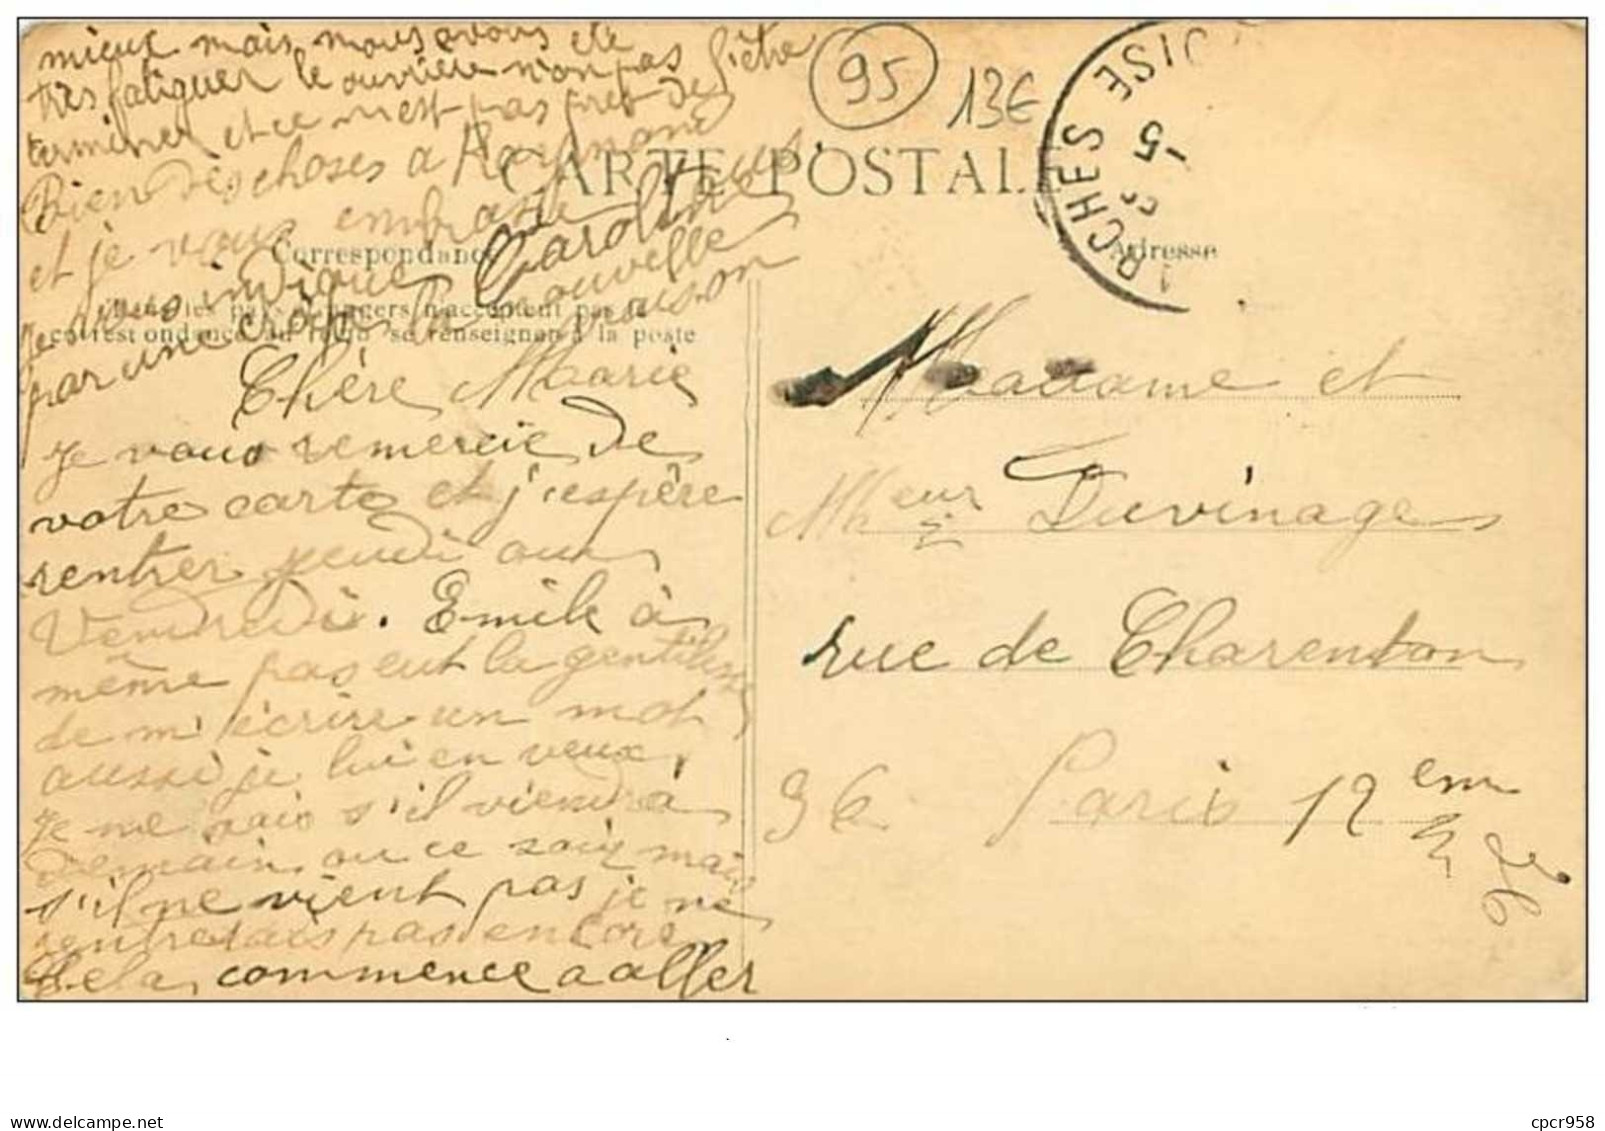 mieux mais nous avons été
très fatiguer le ouvrière n'on pas
terminer et ce n'est pas pret de l'être
Bien des choses a Raymond
et je vous embrasse tous.
Caroline
je vous indique
par une croix la nouvelle
maison
95
13€
CARTE POSTALE
Correspondance
Adresse
Tous les pays étrangers n'acceptent pas la
correspondance au recto se renseigner à la poste
ARCHES
OISE
5
Chère Marie
je vous remercie de
votre carte et j'espère
rentrer jeudi ou
Vendredi. Emile à
même pas eut la gentilesse
de m'écrire un mot
aussi je lui en veux,
je ne sais s'il viendra
demain ou ce soir mais
s'il ne vient pas je ne
rentrerais pas encore
Cela commence a aller
Madame et
Mheur Duvinage
rue de Charenton
96 Paris 12 em